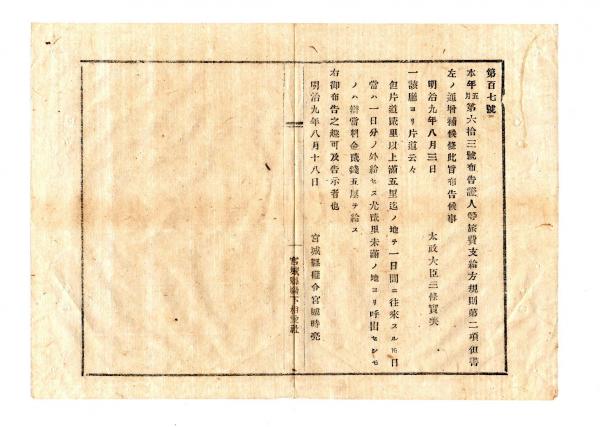 第百七號
本年五月第六拾三號布告證人等旅費支給方規則第二項但書
左ノ通增補候條此旨布告候事
明治九年八月三日
太政大臣三條實美
一該廳ヨリ片道云々
但片道貳里以上滿五里迄ノ地ヲ一日間ニ往來スルトモ日
當ハ一日分ノ外給セス尤貳里未滿ノ地ヨリ呼出セシモ
ノハ辨當料金貳錢五厘ヲ給ス
右御布告之趣可及告示者也
明治九年八月十八日
宮城縣權令宮城時亮